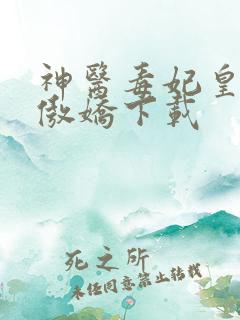 神醫毒妃皇
傲嬌下載
死之所
未任同意禁止轉載